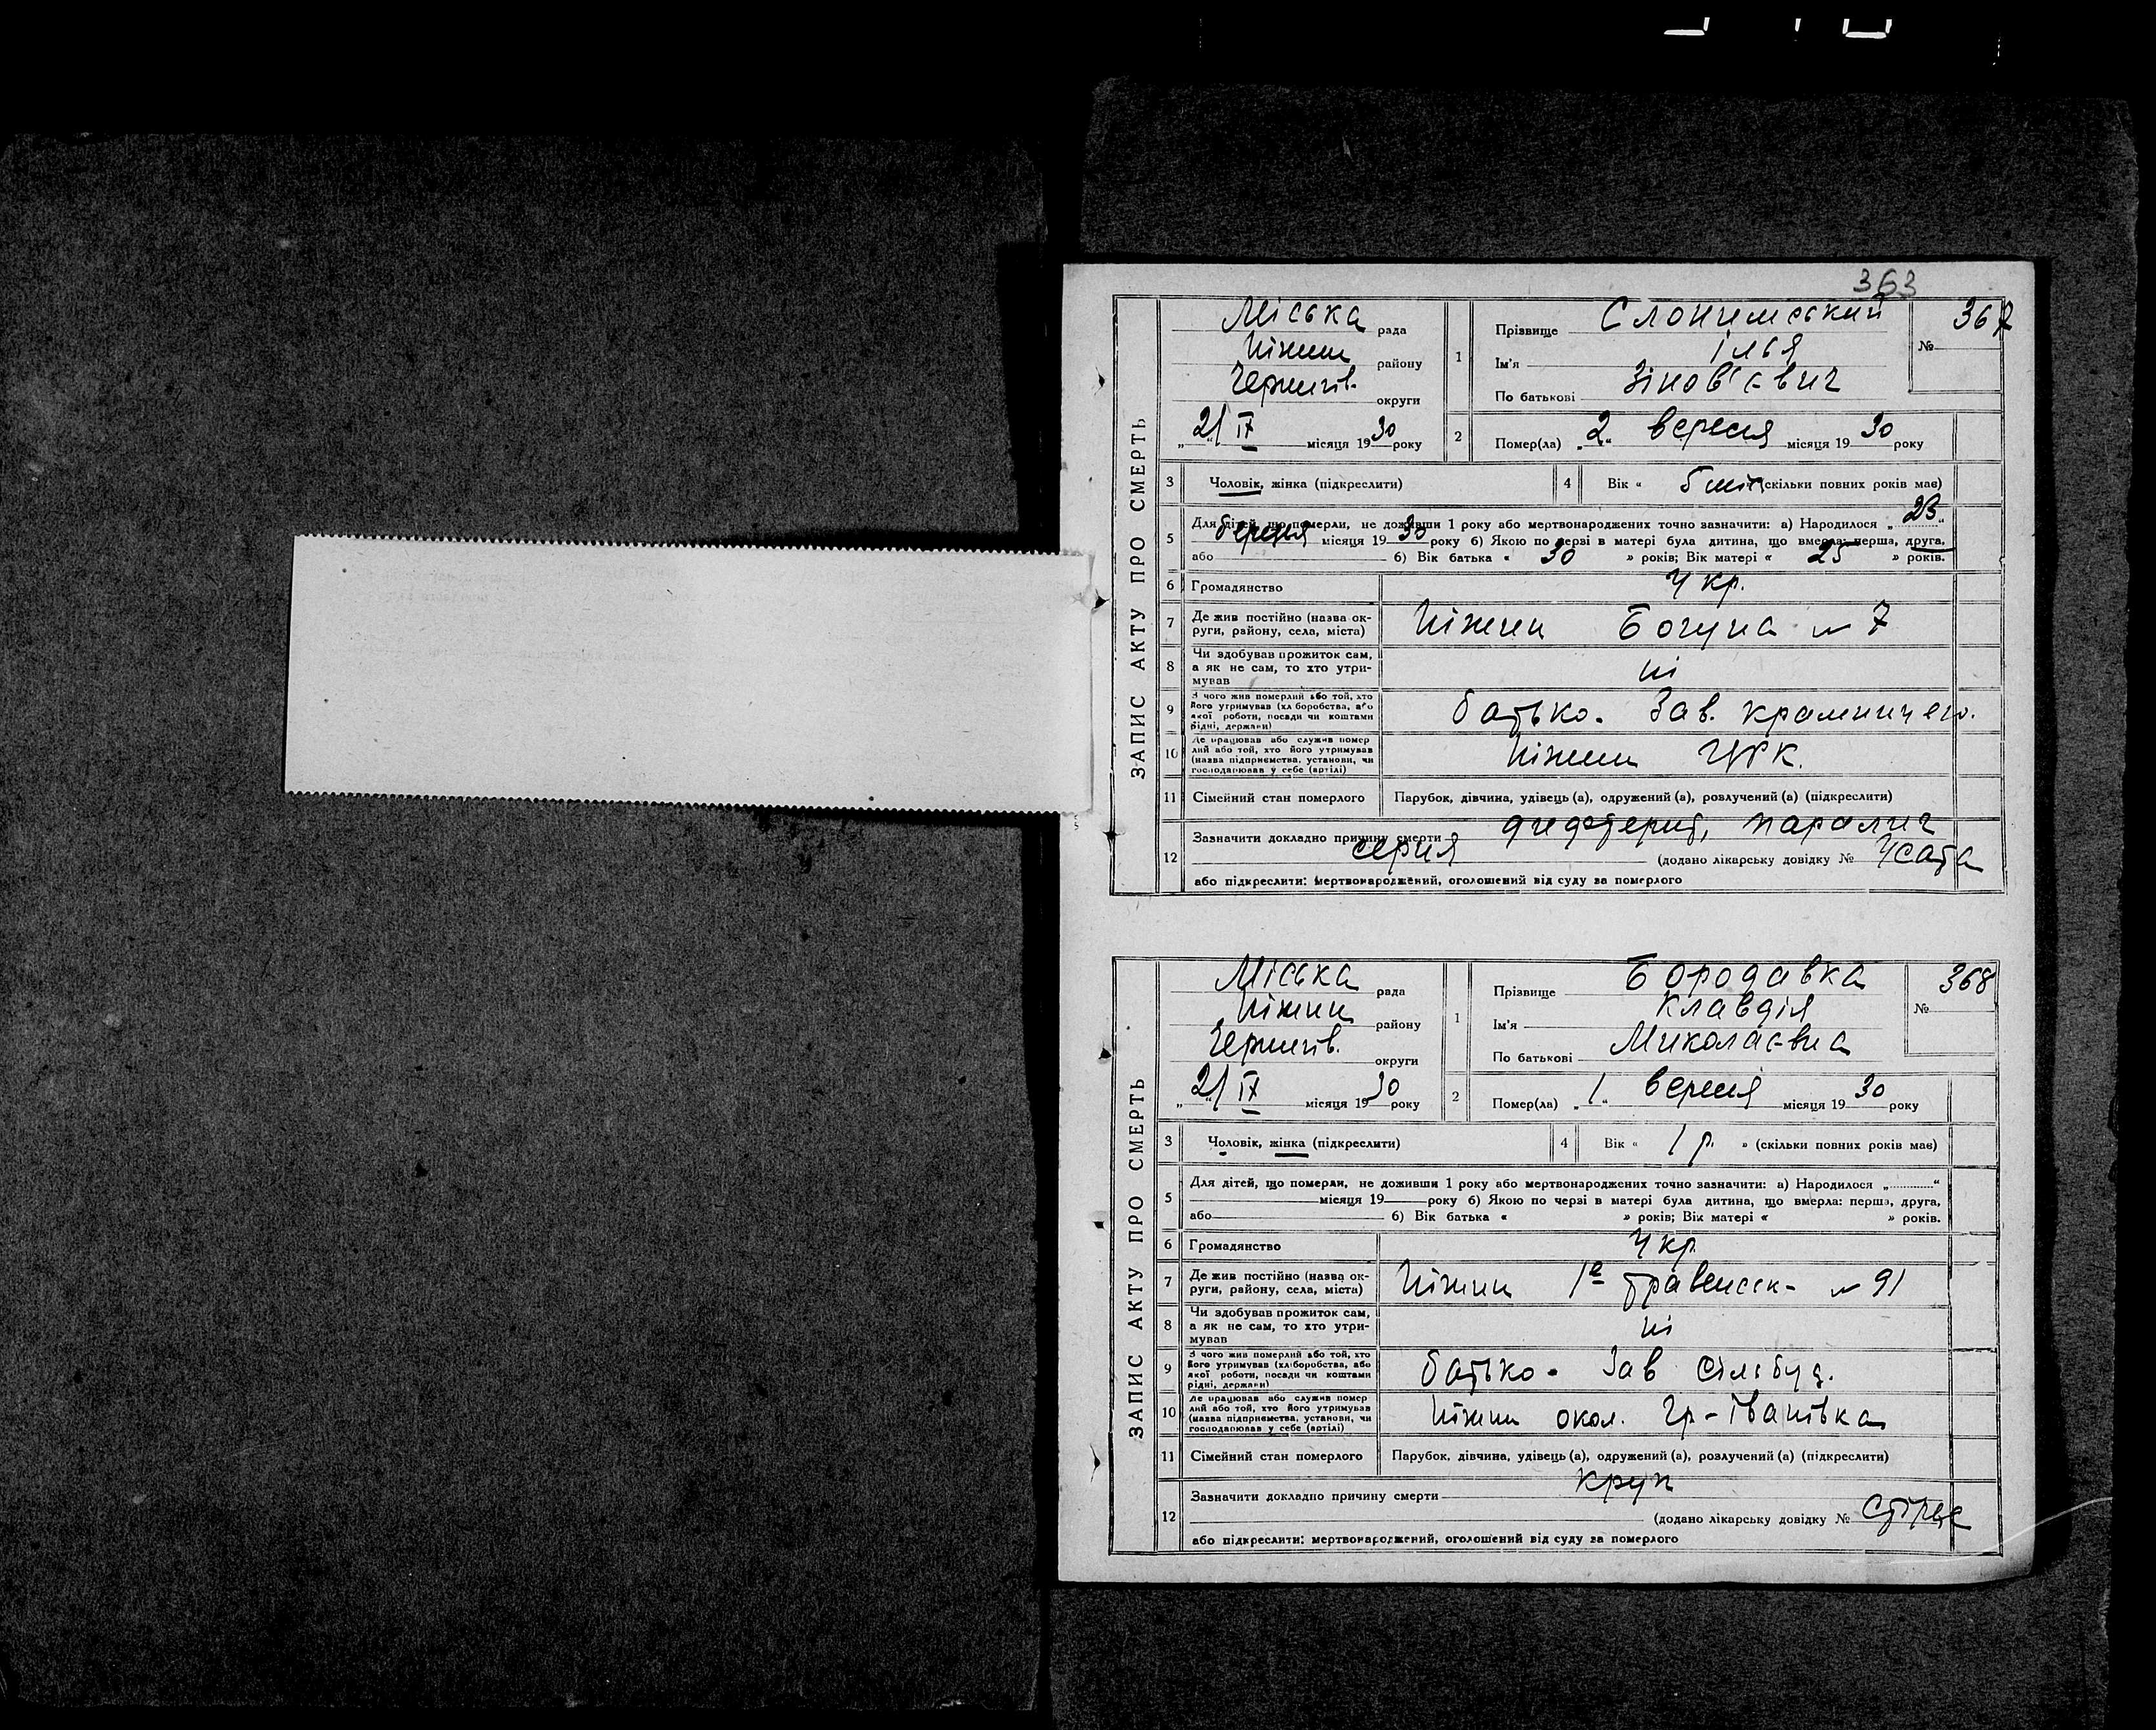 363
ЗАПИС АКТУ ПРО СМЕРТЬ
Міська рада
Ніжин району
Чернигів. округи
„21“ IX місяця 1930 року
1
Прізвище Слонимський
Ім'я Ілья
По батькові Зінов'євич
№ 367
2
Помер(ла) „2“ вересня місяця 1930 року
3 Чоловік, жінка (підкреслити)
4 Вік « 5 міс (скільки повних років має)
5 Для дітей, що померли, не доживши 1 року або мертвонароджених точно зазначити: а) Народилося „23“
березня місяця 1930 року б) Якою по черзі в матері була дитина, що вмерла: перша, друга,
або б) Вік батька « 30 » років; Вік матері « 25 » років.
6 Громадянство Укр.
7 Де жив постійно (назва ок-
руги, району, села, міста) Ніжин Богуна № 7
8 Чи здобував прожиток сам,
а як не сам, то хто утри-
мував ні
9 З чого жив померлий або той, хто
його утримував (хліборобства, або
якої роботи, посади чи коштами
рідні, держави) батько. Зав.
10 Де працював або служив помер
лий або той, хто його утримував
(назва підприємства, установи, чи
господарював у себе (артілі) Ніжин ЦРК.
11 Сімейний стан померлого Парубок, дівчина, удівець (а), одружений (а), розлучений (а) (підкреслити)
12 Зазначити докладно причину смерти паралич
серця (додано лікарську довідку № Усата
або підкреслити: мертвонароджений, оголошений від суду за померлого
ЗАПИС АКТУ ПРО СМЕРТЬ
Міська рада
Ніжин району
Чернигів. округи
„21“ IX місяця 1930 року
1
Прізвище Бородавка
Ім'я Клавдія
По батькові Миколаєвна
№ 368
2
Помер(ла) „1“ вересня місяця 1930 року
3 Чоловік, жінка (підкреслити)
4 Вік « 1 р. » (скільки повних років має)
5 Для дітей, що померли, не доживши 1 року або мертвонароджених точно зазначити: а) Народилося „ “
місяця 19 року б) Якою по черзі в матері була дитина, що вмерла: перша, друга,
або б) Вік батька « » років; Вік матері « » років.
6 Громадянство Укр
7 Де жив постійно (назва ок-
руги, району, села, міста) Ніжин 1е травенск- № 91
8 Чи здобував прожиток сам,
а як не сам, то хто утри-
мував ні
9 З чого жив померлий або той, хто
його утримував (хліборобства, або
якої роботи, посади чи коштами
рідні, держави) батько. Зав сільбуд.
10 Де працював або служив помер
лий або той, хто його утримував
(назва підприємства, установи, чи
господарював у себе (артілі) Ніжин окол. Гр-Іванівка
11 Сімейний стан померлого Парубок, дівчина, удівець (а), одружений (а), розлучений (а) (підкреслити)
12 Зазначити докладно причину смерти круп
(додано лікарську довідку №
або підкреслити: мертвонароджений, оголошений від суду за померлого